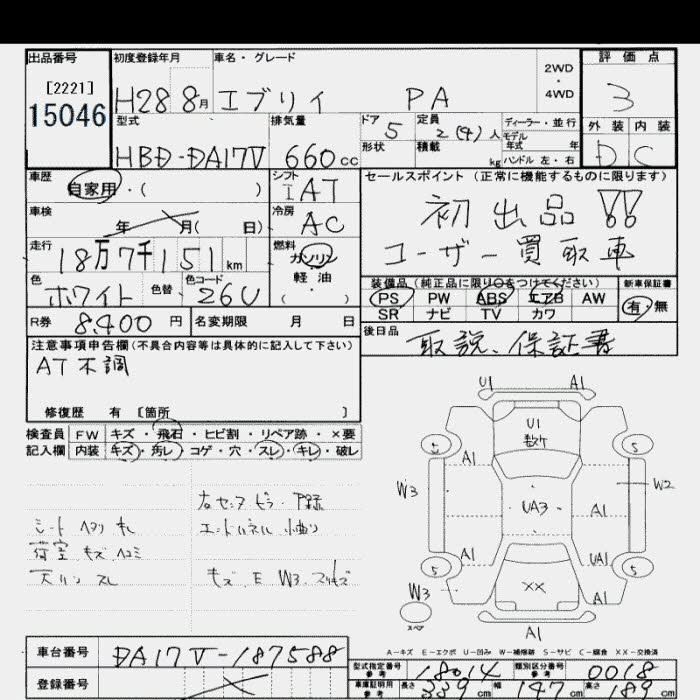 出品番号 初度登録年月 車名・グレード 評価点
[2221]
15046
H28 8月 エブリイ PA 2WD・4WD 3
型式 排気量 ドア 定員 ディーラー・並行 外装 内装
HBD-DA17V 660cc 5 2(4)人 モデル年式 年
形状 積載 kg ハンドル 左・右 D C
車歴 シフト セールスポイント(正常に機能するものに限ります)
自家用・( ) IAT 初出品!!
車検 年 月( 日) 冷房 AC
走行 18万7千151km 燃料 ガソリン・軽油・( ) ユーザー買取車
色 ホワイト 色替 色コード 26U
装備品(純正品に限り○をつけてください) 新車保証書
PS PW ABS エアB AW 有・無
SR ナビ TV カワ
R券 8,400円 名変期限 月 日
後日品 取説、保証書
注意事項申告欄(不具合内容等は具体的に記入して下さい)
AT不調
修復歴 有 [箇所 ]
検査員 FW キズ・飛石・ヒビ割・リペア跡・×要
記入欄 内装 キズ・汚レ・コゲ・穴・スレ・キレ・破レ
シート ヘタリ キレ
荷室 キズ ヘコミ
スレ
キズ E W3
U1 A1
U1
数ケ
5 5
A1
W3 W2
UA3 A1
A1 UA1
5 5
W3 XX
スペア
A1
A-キズ E-エクボ U-凹み W-補修跡 S-サビ C-腐食 XX-交換済
車台番号 DA17V-187588
登録番号
型式指定番号 参考 18014 類別区分番号 参考 0018
車庫証明用 参考 長さ 339cm 幅 147cm 高さ 189cm